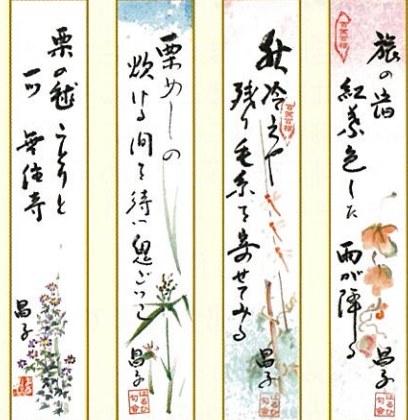 旅の宿
紅葉色した 雨が降る
昌子
秋冷えや
残り毛糸を寄せてみる
昌子
栗めしの
炊ける間を待つ鬼ごっこ
昌子
栗の毬ことりと
一つ 無住寺
昌子